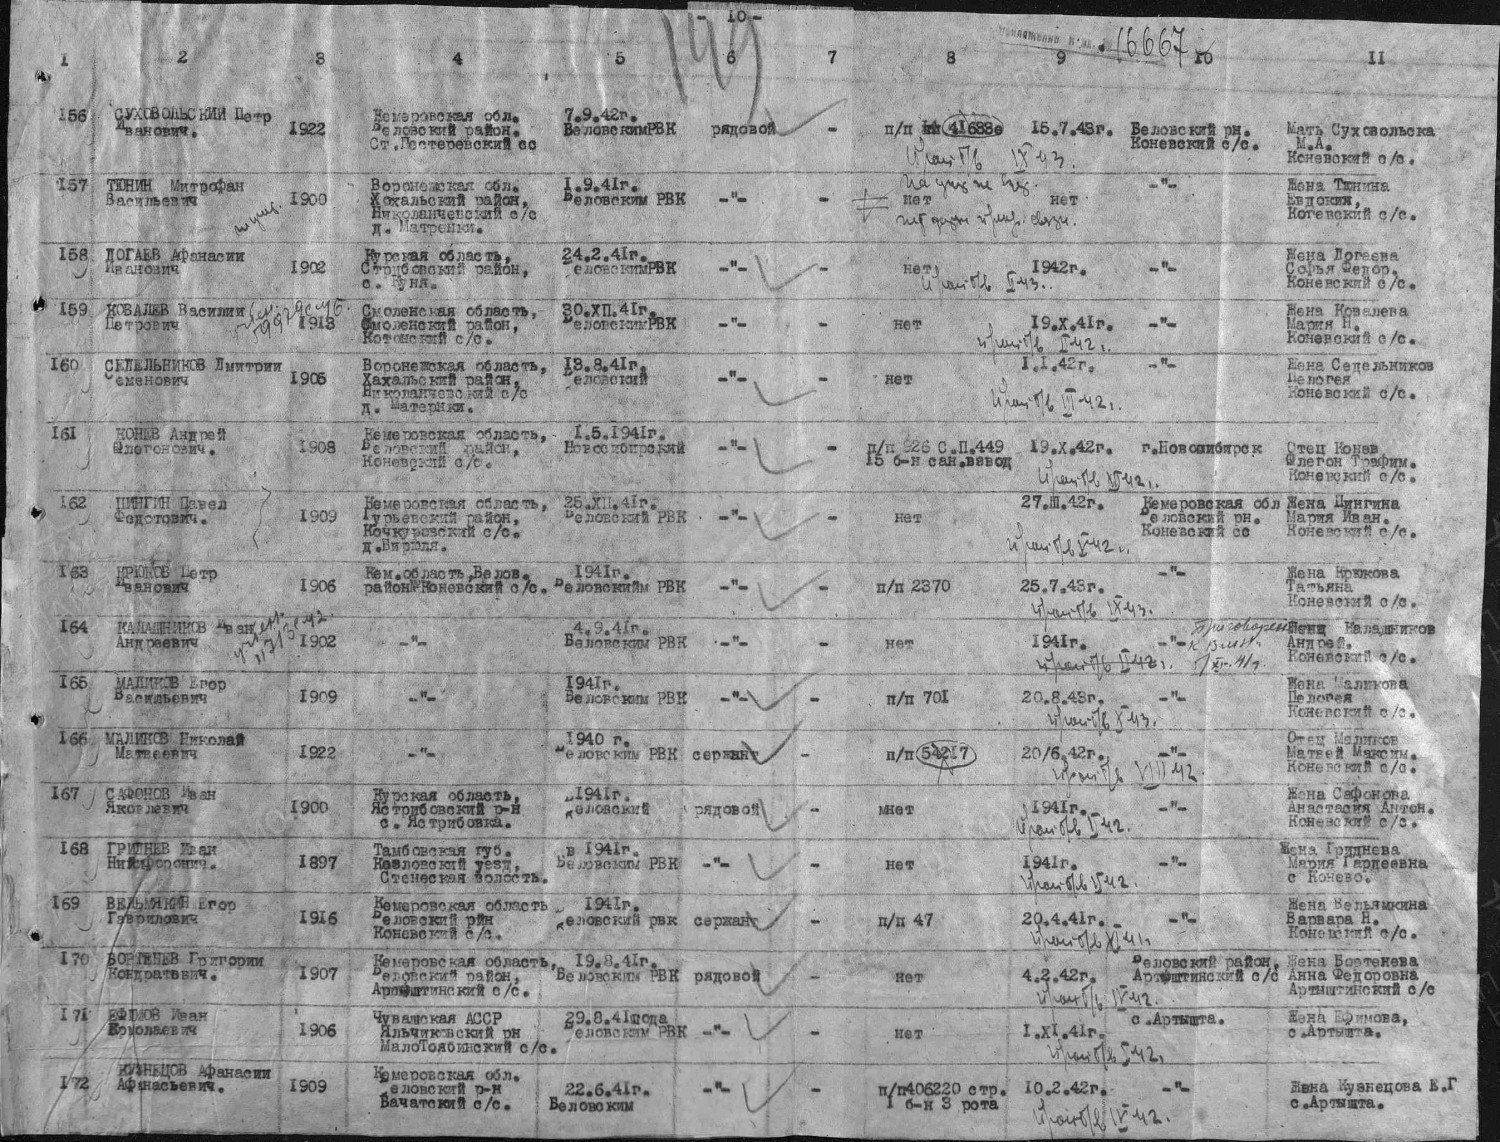 - 10 -
16667
1 2 3 4 5 6 7 8 9 10 11
156 СУХОВОЛЬСКИЙ Петр Иванович. 1922 Кемеровская обл. Беловский район. Ст.Пестеревский сс 7.9.42г. БеловскимРВК рядовой - п/п 41683е 15.7.43г. Беловский рн. Коневский с/с. Мать Суховольска М.А. Коневский с/с.
IX 43.
157 ТЮНИН Митрофан Васильевич 1900 Воронежская обл. Хохальский район, Николанчевский с/с д. Матренки. 1.9.41г. Беловским РВК -"- нет нет -"- Жена Тюнина Евдокия, Котевский с/с.
158 ДОГАЕВ Афанасии Иванович 1902 Курская область, Стрибовский район, с. Гуня. 24.2.41г. БеловскимРВК -"- - нет 1942г. -"- Жена Догаева Софья Федор. Коневский с/с.
159 КОВАЛЕВ Василии Петрович 1913 Смоленская область, Смоленский район, Котонский с/с. 30.XII.41г. БеловскимРВК -"- - нет 19.X.41г. -"- Жена Ковалева Мария Н. Коневский с/с.
160 СЕДЕЛЬНИКОВ Дмитрии Семенович 1905 Воронежская область, Хахальский район, Николанчевский с/с д. Матернки. 13.8.41г. Беловский -"- - нет 1.1.42г. -"- Жена Седельников Пелогея Коневский с/с.
161 КОНЕВ Андрей Флегонович. 1908 Кемеровская область, Беловский район, Коневский с/с. 1.5.1941г. Новосибирский -"- - п/п 926 С.П.449 15 б-н сан.взвод 19.X.42г. г.Новосибирск Отец Конев Флегон Трафим. Коневский с/с.
162 ЦИНГИН Павел Федотович. 1909 Кемеровская область, Гурьевский район, Кочкуровский с/с. д.Бирюля. 25.XII.41г. Беловский РВК -"- - нет 27.III.42г. Кемеровская обл Беловский рн. Коневский сс Жена Цингина Мария Иван. Коневский с/с.
163 КРЮКОВ Петр Иванович 1906 Кем.область,Белов. район Коневский с/с. 1941г. Беловскийм РВК -"- - п/п 2370 25.7.43г. -"- Жена Крюкова Татьяна Коневский с/с.
164 КАЛАШНИКОВ Иван Андреевич 1902 -"- 4.9.41г. Беловским РВК -"- - нет 1941г. -"- Калашников Андрей. Коневский с/с.
165 МАЛИКОВ Егор Васильевич 1909 -"- 1941г. Беловским РВК -"- - п/п 701 20.8.43г. -"- Жена Маликова Пелогея Коневский с/с.
166 МАЛИКОВ Николай Матвеевич 1922 -"- 1940 г. Беловским РВК сержант - п/п 54217 20/6.42г. -"- Отец Маликов Матвей Максим. Коневский с/с.
167 САФОНОВ Иван Яковлевич 1900 Курская область, Ястрибовский р-н с. Ястрибовка. 1941г. Беловский рядовой - мнет 1941г. -"- Жена Сафонова Анастасия Антон. Коневский с/с.
168 ГРИДНЕВ Иван Никифорович. 1897 Тамбовская губ. Козловский уезд, Стенеская волость. в 1941г. Беловским РВК -"- - нет 1941г. -"- Жена Гриднева Мария Гардеевна с Конево.
169 ВЕЛЬМЯКИН Егор Гаврилович 1916 Кемеровская область Беловский рйн Коневский с/с. 1941г. Беловский рвк сержант - п/п 47 20.4.41г. -"- Жена Вельямкина Варвара Н. Коневский с/с.
170 БОРТЕНЕВ Григории Кондратевич. 1907 Кемеровская область, Беловский район, Артыштинский с/с. 19.8.41г. Беловским РВК рядовой - нет 4.2.42г. Беловский район, Артыштинский с/с Жена Бортенева Анна Федоровна Артыштинский с/с
171 ЕФИМОВ Иван Ермолаевич 1906 Чувашская АССР Яльчиковский рн МалоТоябинский с/с. 29.8.41года Беловским РВК -"- - нет 1.XI.41г. с.Артышта. Жена Ефимова, с.Артышта.
172 КУЗНЕЦОВ Афанасии Афанасьевич. 1909 Кемеровская обл. Беловский р-н Бачатский с/с. 22.6.41г. Беловским -"- - п/п406220 стр. 1 б-н 3 рота 10.2.42г. -"- Жена Кузнецова Е.Г с.Артышта.